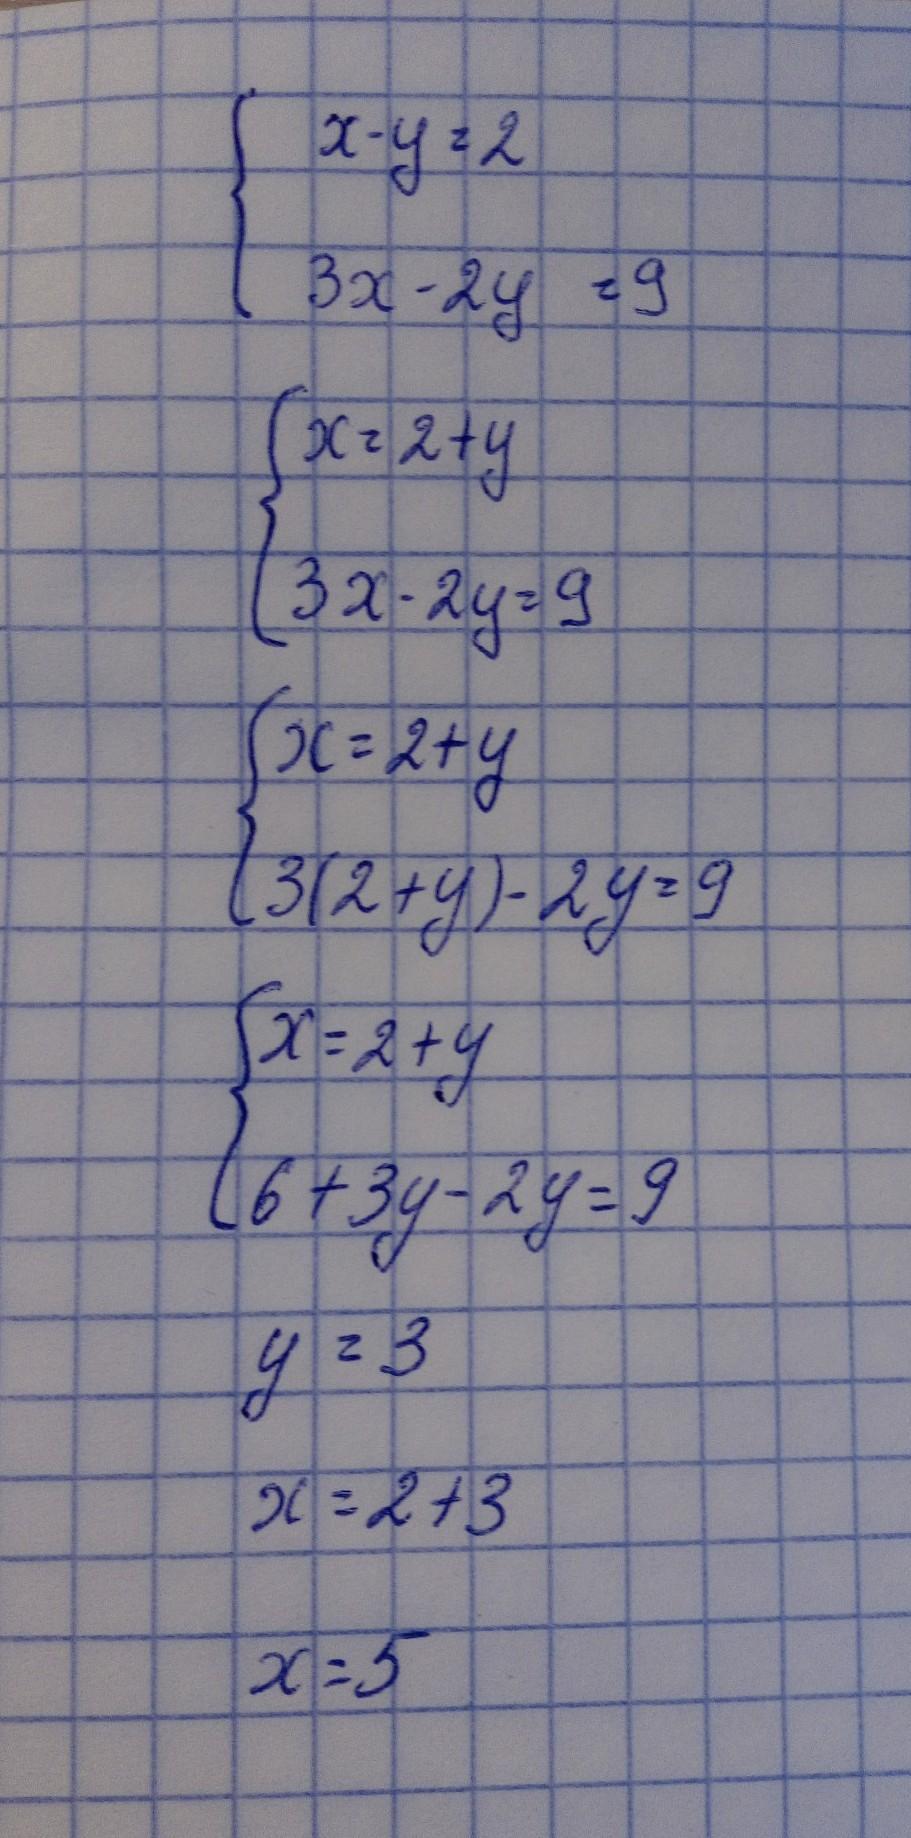 x-y=2
3x-2y =9
x=2+y
3x-2y=9
x=2+y
3(2+y)-2y=9
x=2+y
6+3y-2y=9
y=3
x=2+3
x=5